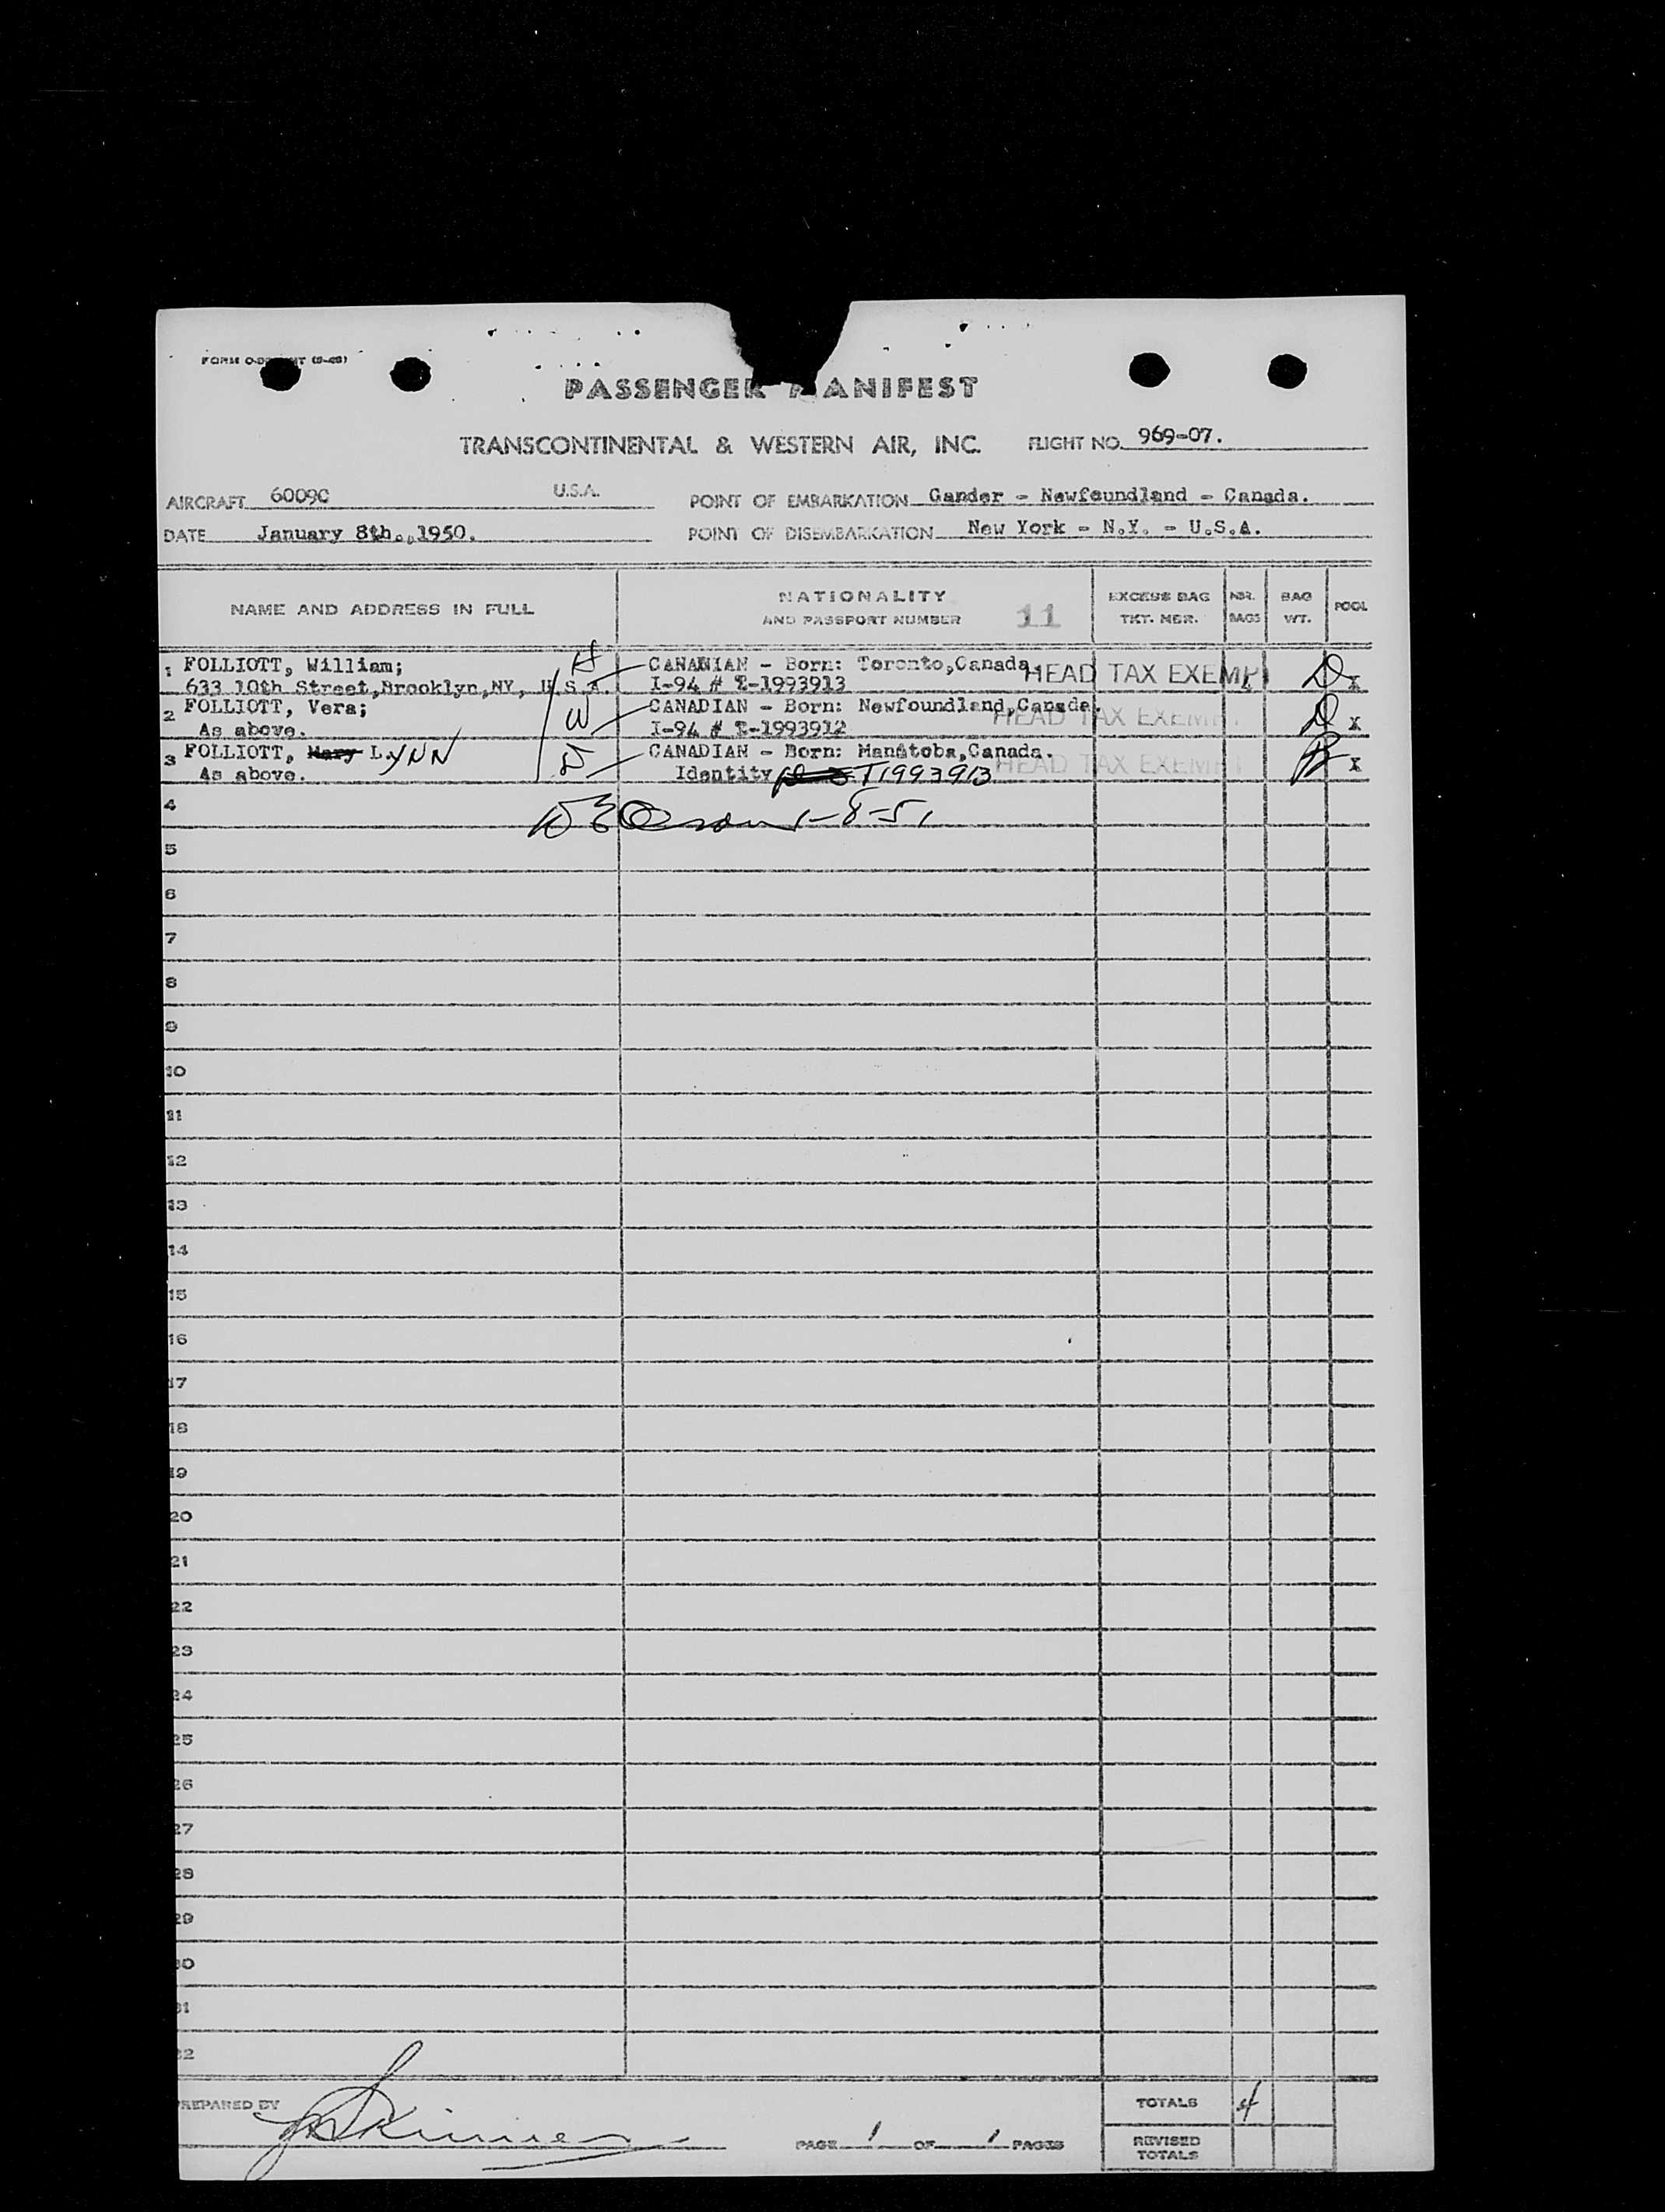 PASSENGER MANIFEST
TRANSCONTINENTAL & WESTERN AIR, INC. FLIGHT NO. 969-07.
AIRCRAFT 60090 U.S.A. POINT OF EMBARKATION Gander - Newfoundland - Canada.
DATE January 8th.,1950. POINT OF DISEMBARKATION New York - N.Y. - U.S.A.
NAME AND ADDRESS IN FULL NATIONALITY AND PASSPORT NUMBER 11 EXCESS BAG TKT. NBR. NBR. BAGS BAG WT. POOL
1 FOLLIOTT, William; H CANADIAN - Born: Toronto,Canada. HEAD TAX EXEMPT D X
633 10th Street,Brooklyn,NY, U.S.A. I-94 # T-1993913 4
2 FOLLIOTT, Vera; W CANADIAN - Born: Newfoundland,Canada. HEAD TAX EXEMPT D X
As above. I-94 # T-1993912
3 FOLLIOTT, Mary L.YNN D CANADIAN - Born: Manitoba,Canada. HEAD TAX EXEMPT X
As above. Identity T1993913
1-8-51
4
5
6
7
8
9
10
11
12
13
14
15
16
17
18
19
20
21
22
23
24
25
26
27
28
29
30
31
32
PREPARED BY Skinner PAGE 1 OF 1 PAGES
TOTALS 4
REVISED TOTALS